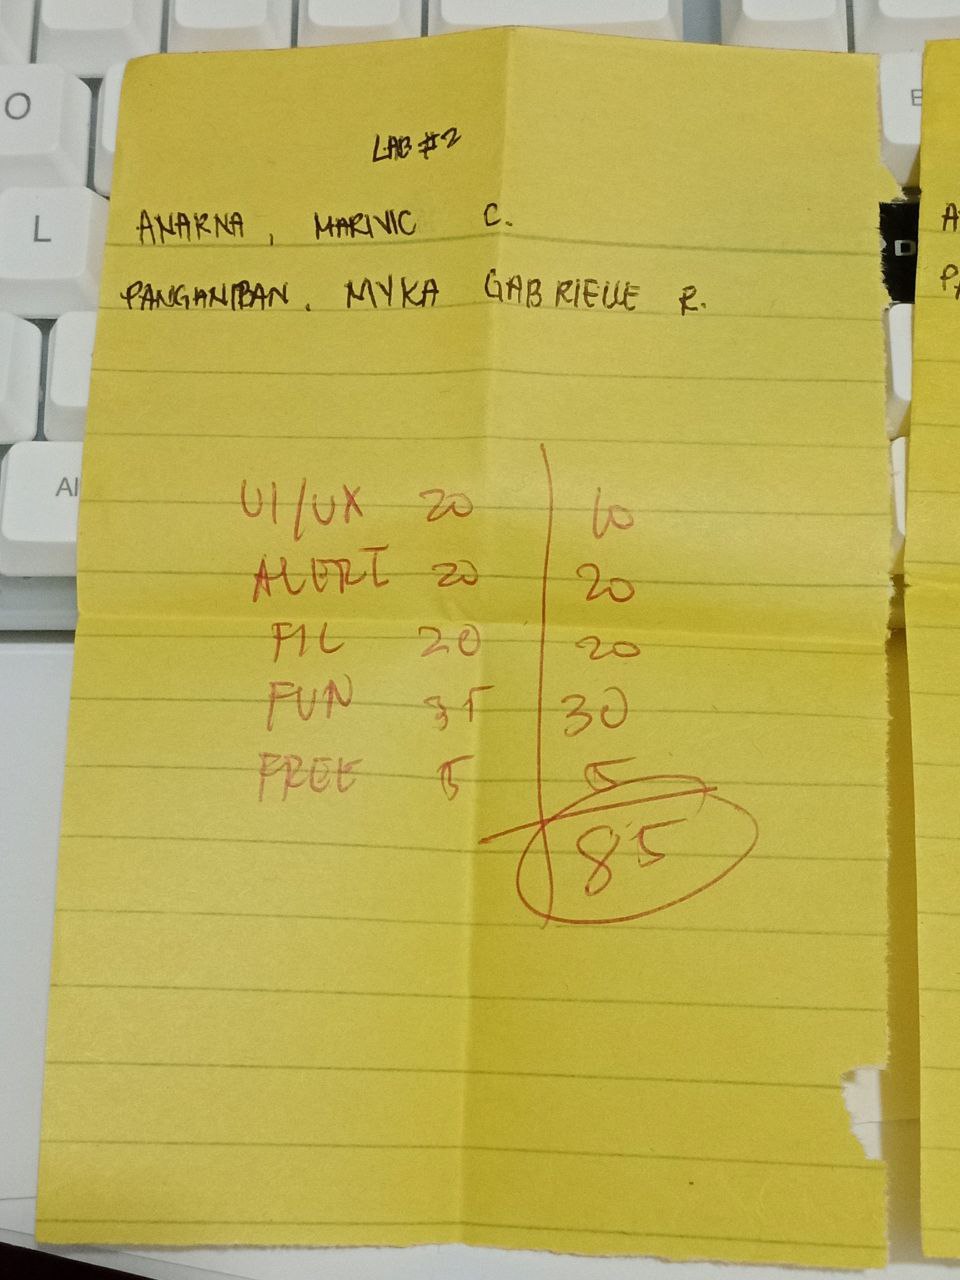 LAB #2
ANARNA, MARIVIC C.
PANGANIBAN, MYKA GABRIELLE R.
UI/UX 20 10
ALERT 20 20
FIL 20 20
FUN 35 30
FREE 5 5
85
O
L
Al
E
D
A
PA